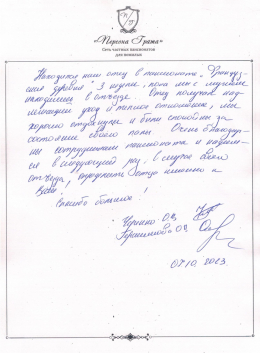 «Персона Грата»
Сеть частных пансионатов
для пожилых
Находился наш отец в пансионате "Французская
деревня" 3 недели, пока мы с мужем
находились в отъезде. Отец получил надлежащий
уход и теплое отношение, мы
хорошо отдохнули и были спокойны за
состояние своего папы. Очень благодарны
сотрудникам пансионата и надеемся
в следующий раз, в случае своего
отъезда, определить отца именно к
Вам!
Спасибо большое!
О.В.
О.В.
07.10.2023